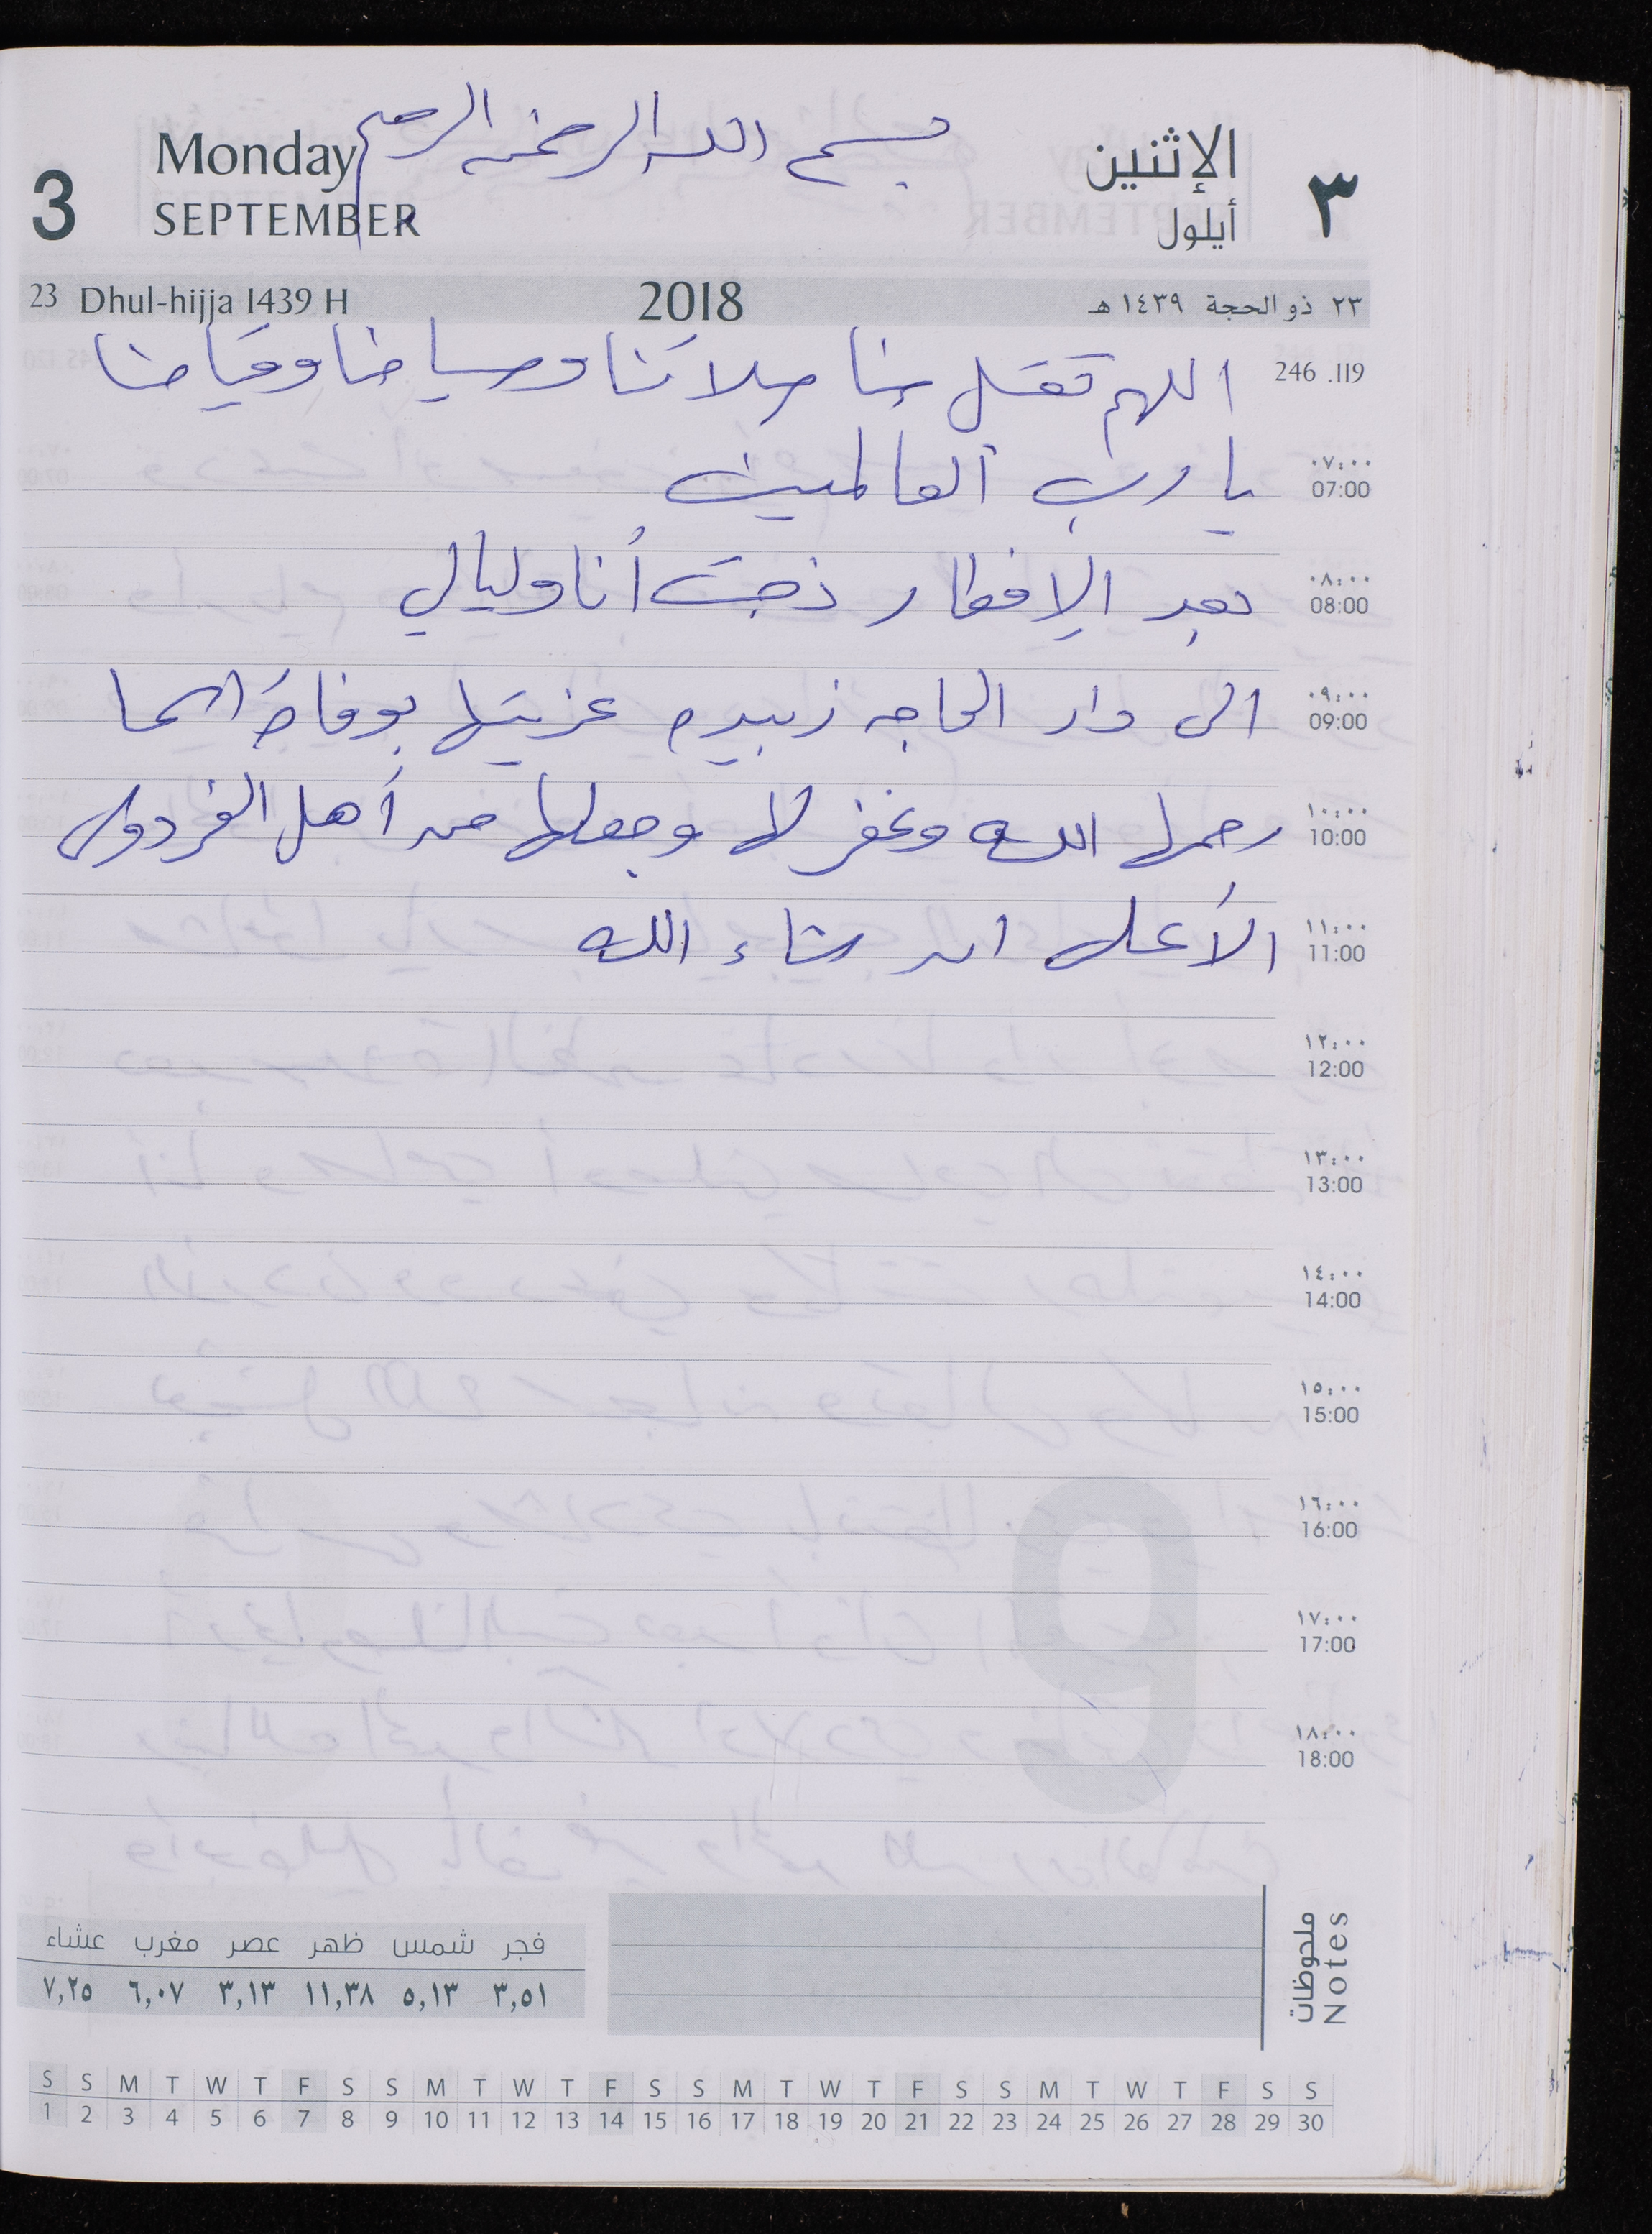 بسم الله الرحمن الرحيم
Monday
الإثنين
3
SEPTEMBER
أيلول
٣
23 Dhul-hijja 1439 H
2018
٢٣ ذو الحجة ١٤٣٩ هـ
246 .119
اللهم تقبل منا صلاتنا وصيامنا وقيامنا
٠٧:٠٠
07:00
يا رب العالمين
٠٨:٠٠
08:00
بعد الإفطار ذهبت أنا وليالي
٠٩:٠٠
09:00
الى دار الحاجه زبيده عزيتها بوفاة
١٠:٠٠
10:00
رحمها الله وغفر لها وجعلها من أهل الفردوس
١١:٠٠
11:00
الأعلى ان شاء الله
١٢:٠٠
12:00
١٣:٠٠
13:00
١٤:٠٠
14:00
١٥:٠٠
15:00
١٦:٠٠
16:00
9
١٧:٠٠
17:00
١٨:٠٠
18:00
ملحوظات
Notes
فجر شمس ظهر عصر مغرب عشاء
٣,٥١ ٥,١٣ ١١,٣٨ ٣,١٣ ٦,٠٧ ٧,٢٥
S S M T W T F S S M T W T F S S M T W T F S S M T W T F S S
1 2 3 4 5 6 7 8 9 10 11 12 13 14 15 16 17 18 19 20 21 22 23 24 25 26 27 28 29 30